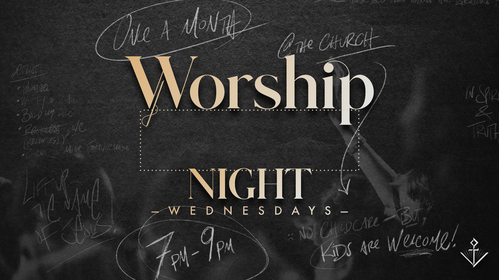 ONCE A MONTH
@ THE CHURCH
Worship
NIGHT
– WEDNESDAYS –
7PM - 9PM
NO CHILDCARE - BUT
KIDS ARE WELCOME!
LIFT UP
THE NAME
OF JESUS!
TRUTH